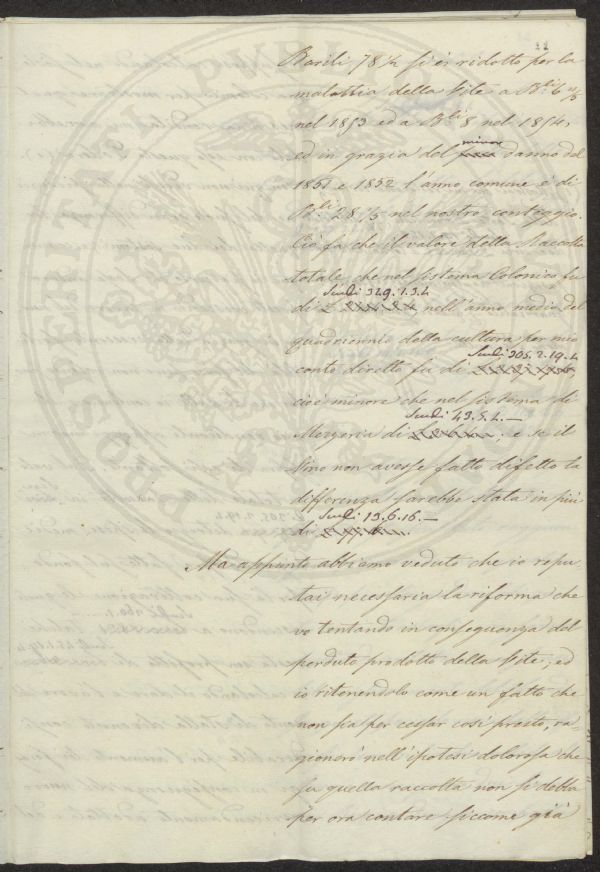 Barili 78 ½ si è ridotto per la
malattia della Vite a B.li 6 ⅔
nel 1853 ed a B.li 8 nel 1854,
ed in grazia del minor danno del
1851 e 1852 l'anno comune è di
B.li 28 ⅓ nel nostro conteggio.
Ciò fa che il valore della Raccolta
totale che nel sistema Colonico fu
di Scudi 329.1.3.4 nell'anno medio del
quadriennio della cultura per mio
conto diretto fu di Scudi 305.2.19.4
cioè minore che nel sistema di
Mezzeria di Scudi 43.5.4.— e se il
Vino non avesse fatto difetto la
differenza sarebbe stata in più
di Scudi 19.6.16.—
Ma appunto abbiamo veduto che io repu,
tai necessaria la riforma che
vo tentando in conseguenza del
perduto prodotto della Vite, ed
io ritenendolo come un fatto che
non sia per cessar così presto, ra,
gionerò nell'ipotesi dolorosa che
su quella raccolta non si debba
per ora contare siccome già